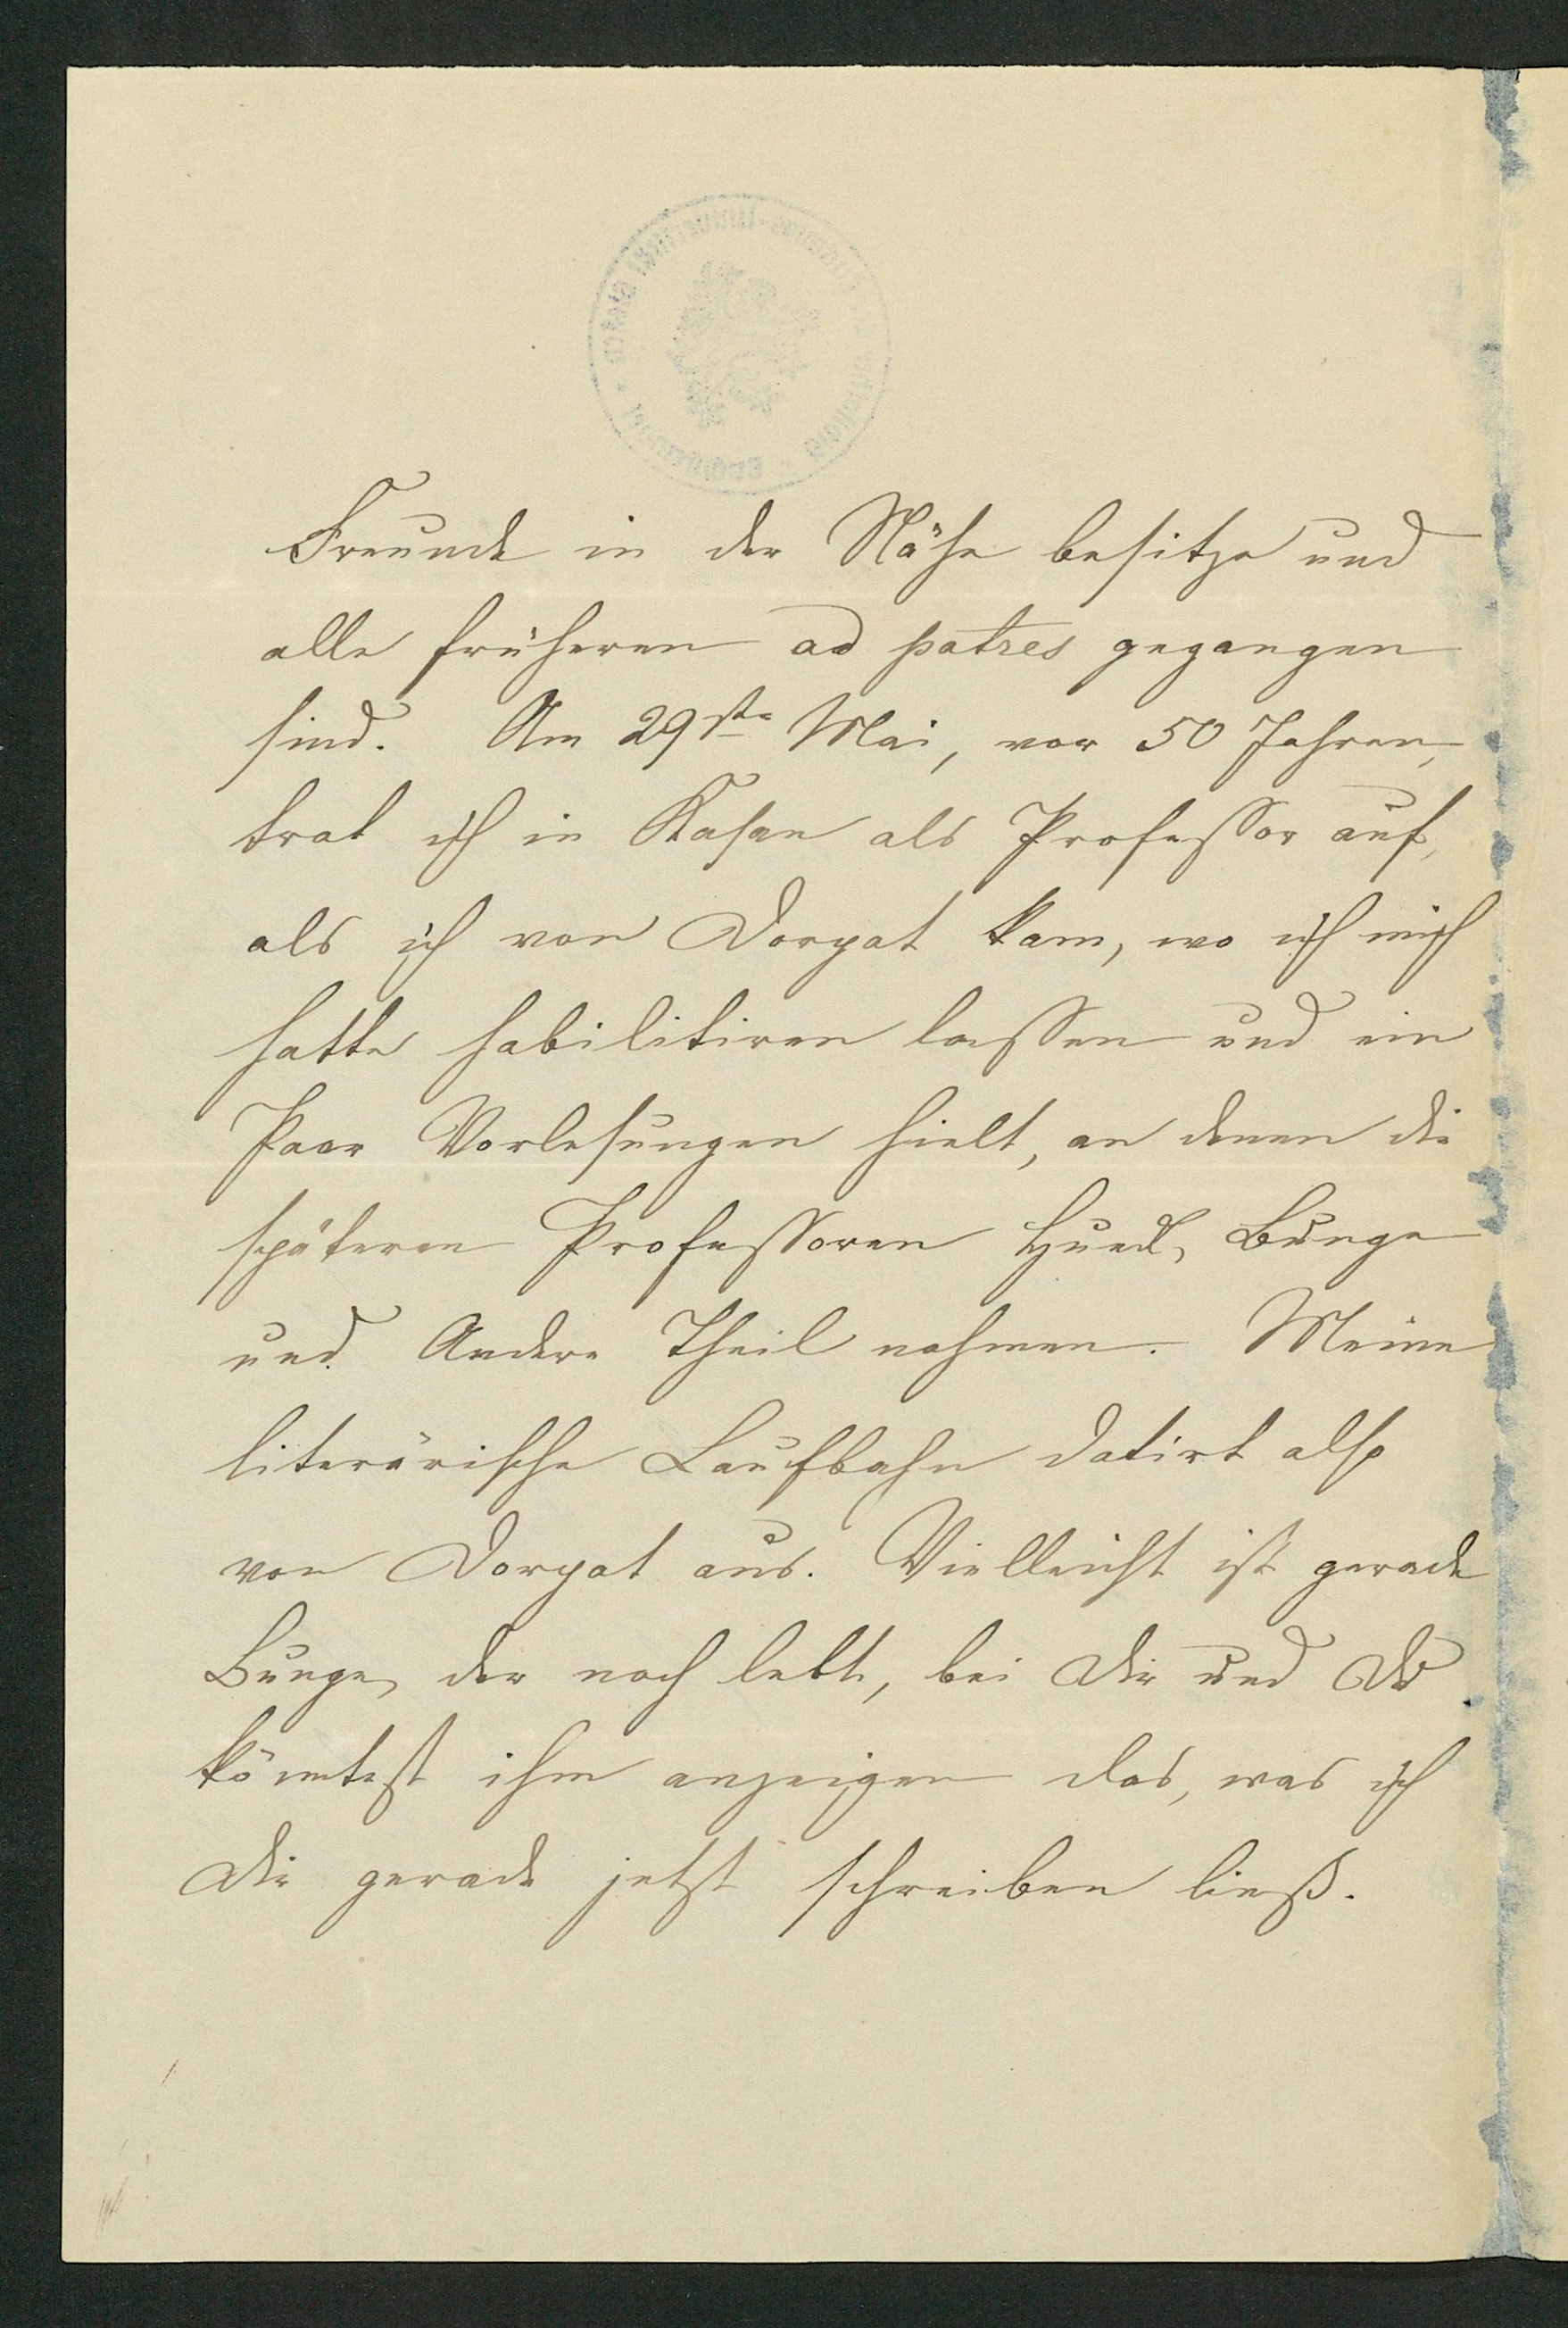 Freunde in der Nähe besitze und
alle früheren ad patres gegangen
sind. Am 29ste Mai, vor 50 Jahren,
trat ich in Kasan als Professor auf,
als ich von Dorpat kam, wo ich mich
hatte habilitiren lassen und ein
Paar Vorlesungen hielt, an denen die
späteren Professoren Hueck, Bunge
und Andere Theil nahmen. Meine
literärische Laufbahn datirt also
von Dorpat aus. Vielleicht ist gerade
Bunge, der noch lebt, bei Dir und Du
könntest ihm anzeigen das, was ich
Dir gerade jetzt schreiben ließ.